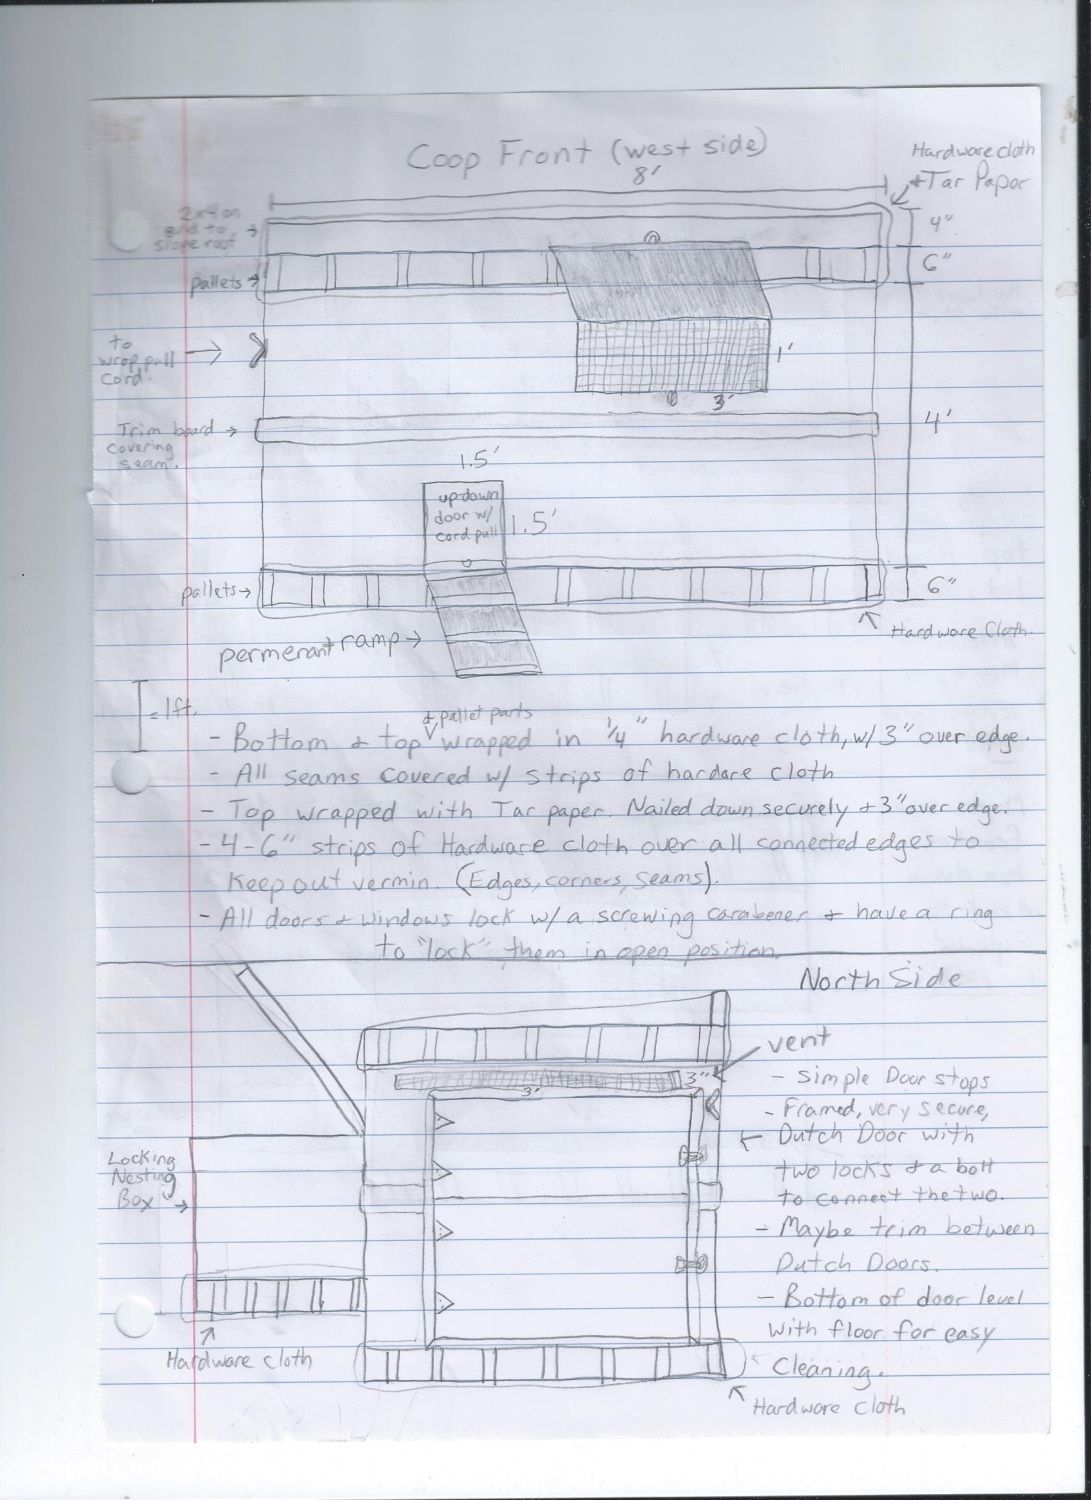 Coop Front (west side)
8'
Hardware cloth
+ Tar Paper
2x4 on
end to
slope roof
4"
6"
pallets
to
wrap pull
cord.
1'
3'
Trim board
covering
seam.
4'
1.5'
up-down
door w/
cord pull
1.5'
pallets
6"
Hardware Cloth
permenant ramp
= 1ft.
& pallet parts
- Bottom & top wrapped in 1/4" hardware cloth, w/ 3" over edge.
- All seams covered w/ strips of hardare cloth
- Top wrapped with Tar paper. Nailed down securely + 3" over edge.
- 4-6" strips of Hardware cloth over all connected edges to
keep out vermin. (Edges, corners, seams).
- All doors & windows lock w/ a screwing carabener & have a ring
to "lock" them in open position.
North Side
vent
3"
3'
- Simple Door stops
- Framed, very secure,
Dutch Door with
two locks & a bolt
to connect the two.
- Maybe trim between
Dutch Doors.
- Bottom of door level
with floor for easy
Cleaning.
Locking
Nesting
Box
Hardware cloth
Hardware cloth